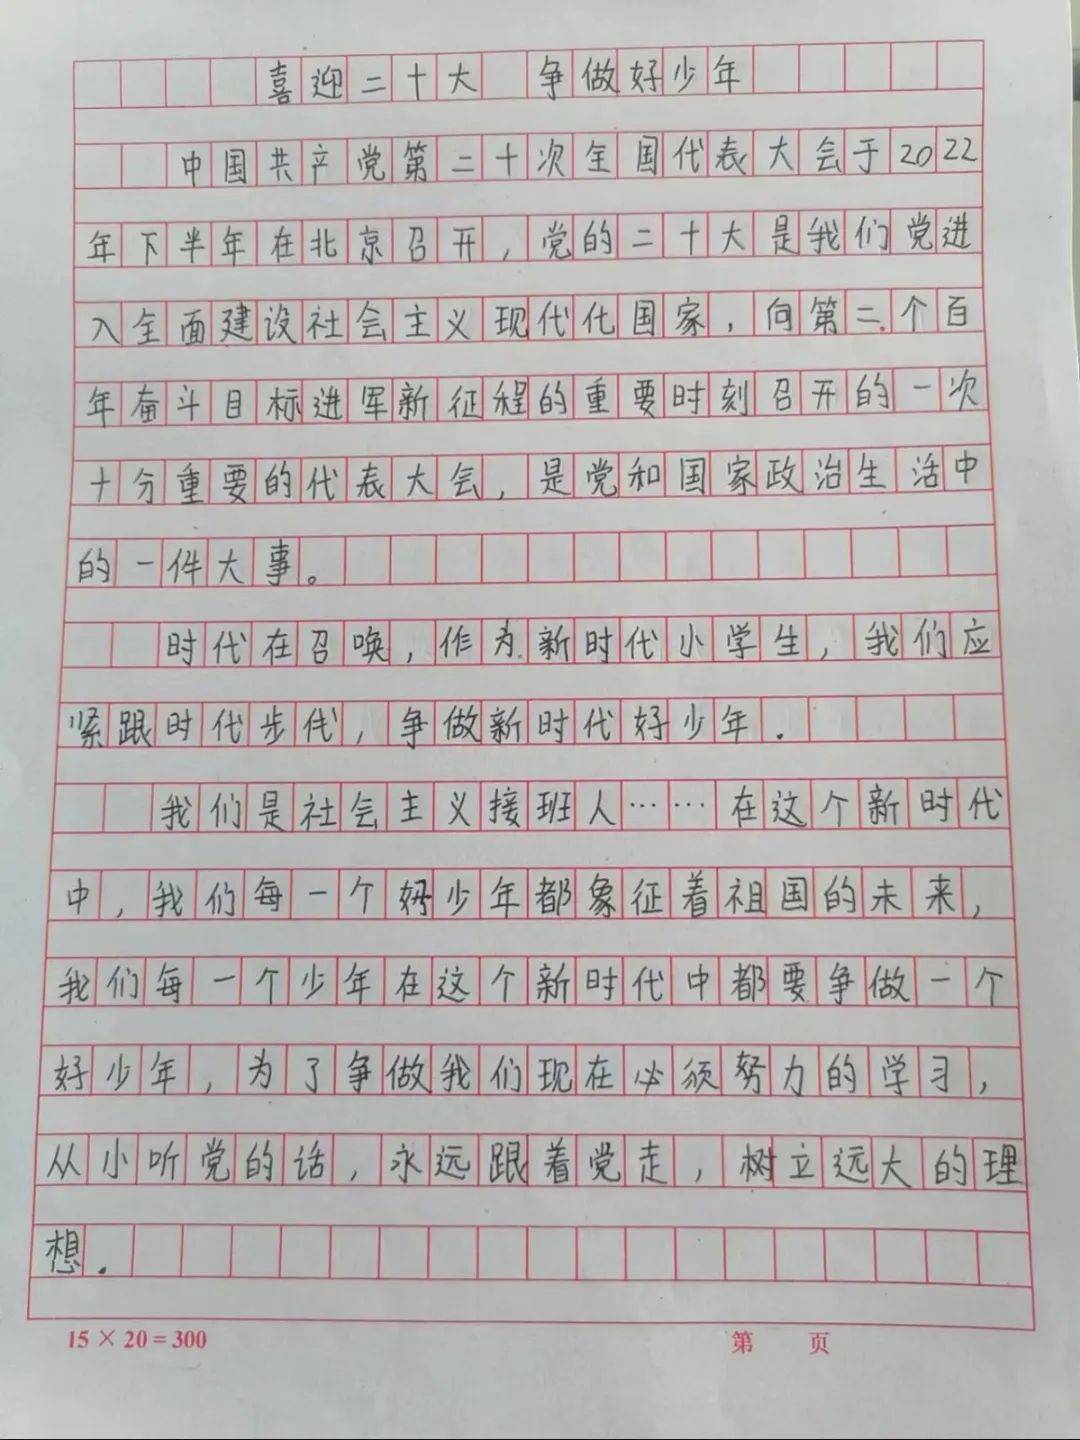 喜迎二十大 争做好少年
中国共产党第二十次全国代表大会于2022
年下半年在北京召开，党的二十大是我们党进
入全面建设社会主义现代化国家，向第二个百
年奋斗目标进军新征程的重要时刻召开的一次
十分重要的代表大会，是党和国家政治生活中
的一件大事。
时代在召唤，作为新时代小学生，我们应
紧跟时代步伐，争做新时代好少年.
我们是社会主义接班人……在这个新时代
中，我们每一个好少年都象征着祖国的未来，
我们每一个少年在这个新时代中都要争做一个
好少年，为了争做我们现在必须努力的学习，
从小听党的话，永远跟着党走，树立远大的理
想.
15×20=300 第 页